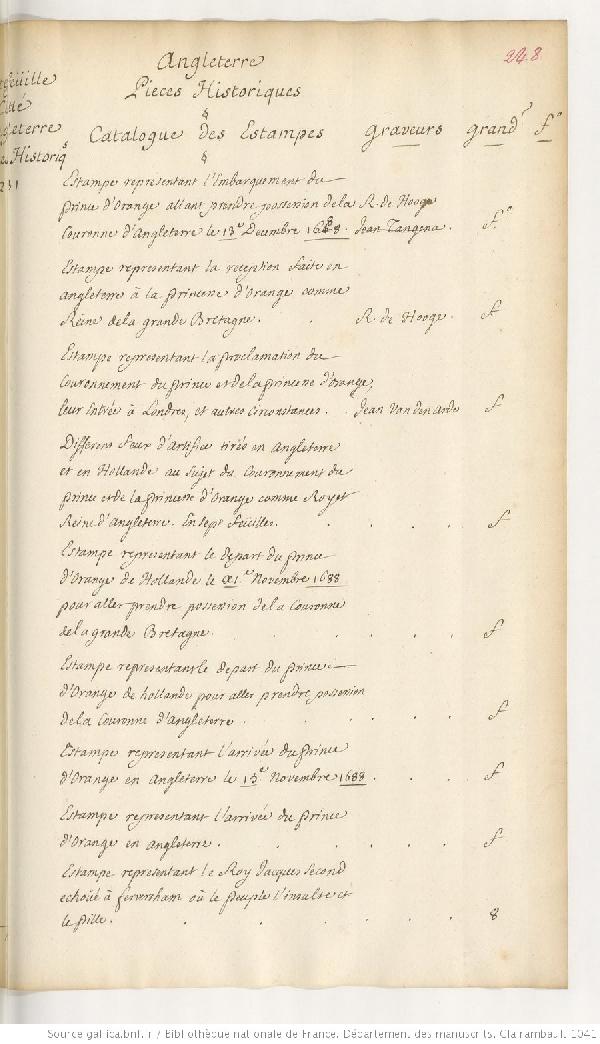 248
Angleterre
Pieces Historiques
&
Catalogue des Estampes graveurs grandr fo
&
Estampe representant l'Embarquement du
prince d'Orange allant prendre possession dela R. de Hooge
Couronne d'Angleterre le 13e Decembre 1688. Jean Tangena. fo
Estampe representant la reception faite en
angleterre à la princesse d'Orange comme
Reine dela grande Bretagne. R. de Hooge. f
Estampe representant la proclamation du
Couronnement du prince et de la princesse d'Orange,
leur Entrée à Londres, et autres Circonstances. Jean Van den Aede f
Differens feux d'Artifice tirés en Angleterre
et en Hollande au sujet du Couronnement du
prince et de la princesse d'Orange comme Roy et
Reine d'Angleterre. En sept feuilles. f
Estampe representant le depart du prince
d'Orange de Hollande le 1e Novembre 1688
pour aller prendre possession de la Couronne
dela grande Bretagne. f
Estampe representant le depart du prince
d'Orange de hollande pour aller prendre possession
de la Couronne d'Angleterre. f
Estampe representant l'arrivée du prince
d'Orange en Angleterre le 15e Novembre 1688. f
Estampe representant l'arrivée du prince
d'Orange en angleterre. f
Estampe representant le Roy Jacques Second
echoüé à feversham où le peuple l'insulte et
le pille. 8
efeüille
gleterre
Historiqs
231
Source gallica.bnf.fr / Bibliothèque nationale de France. Département des manuscrits. Clairambault 1041